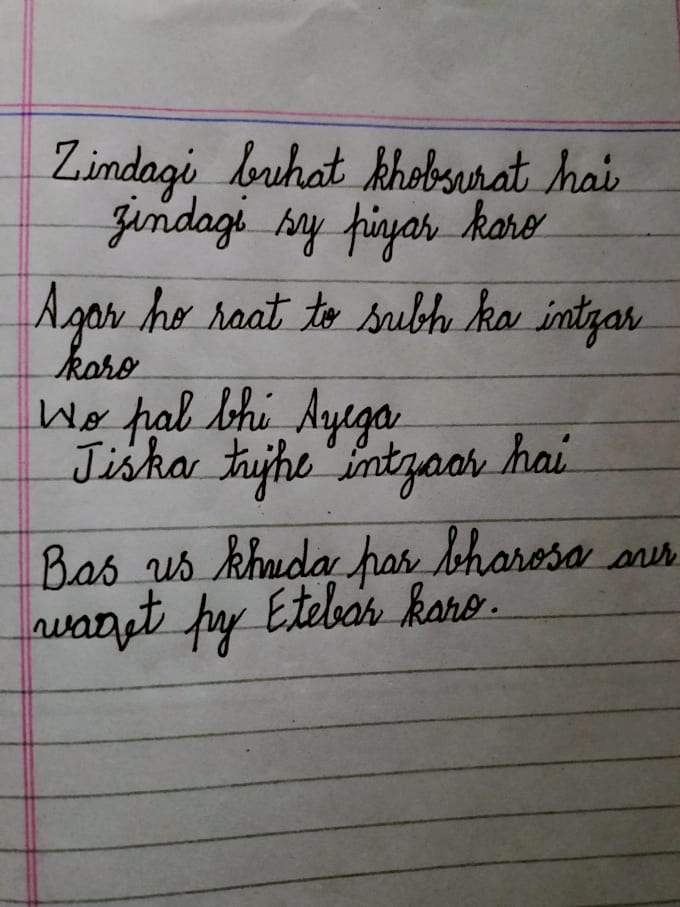 Zindagi buhat khobsurat hai
zindagi sy piyar karo
Agar ho raat to subh ka intzar
karo
Wo pal bhi Ayega
Jiska tujhe intzaar hai
Bas us khuda par bharosa aur
waqt py Etebar karo.